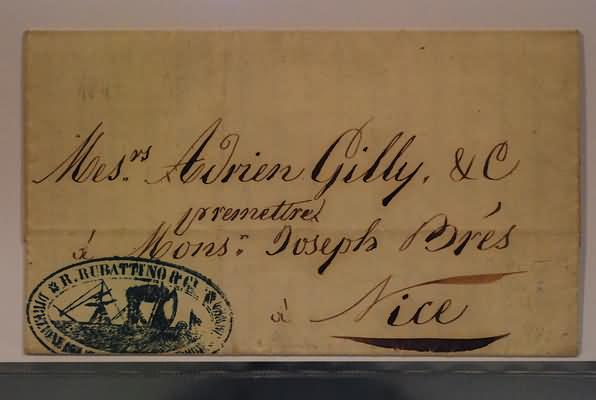 Mes.rs Adrien Gilly, & C
premettre
à Mons.r Joseph Brés
à Nice
R. RUBATTINO & C.
DIREZIONE